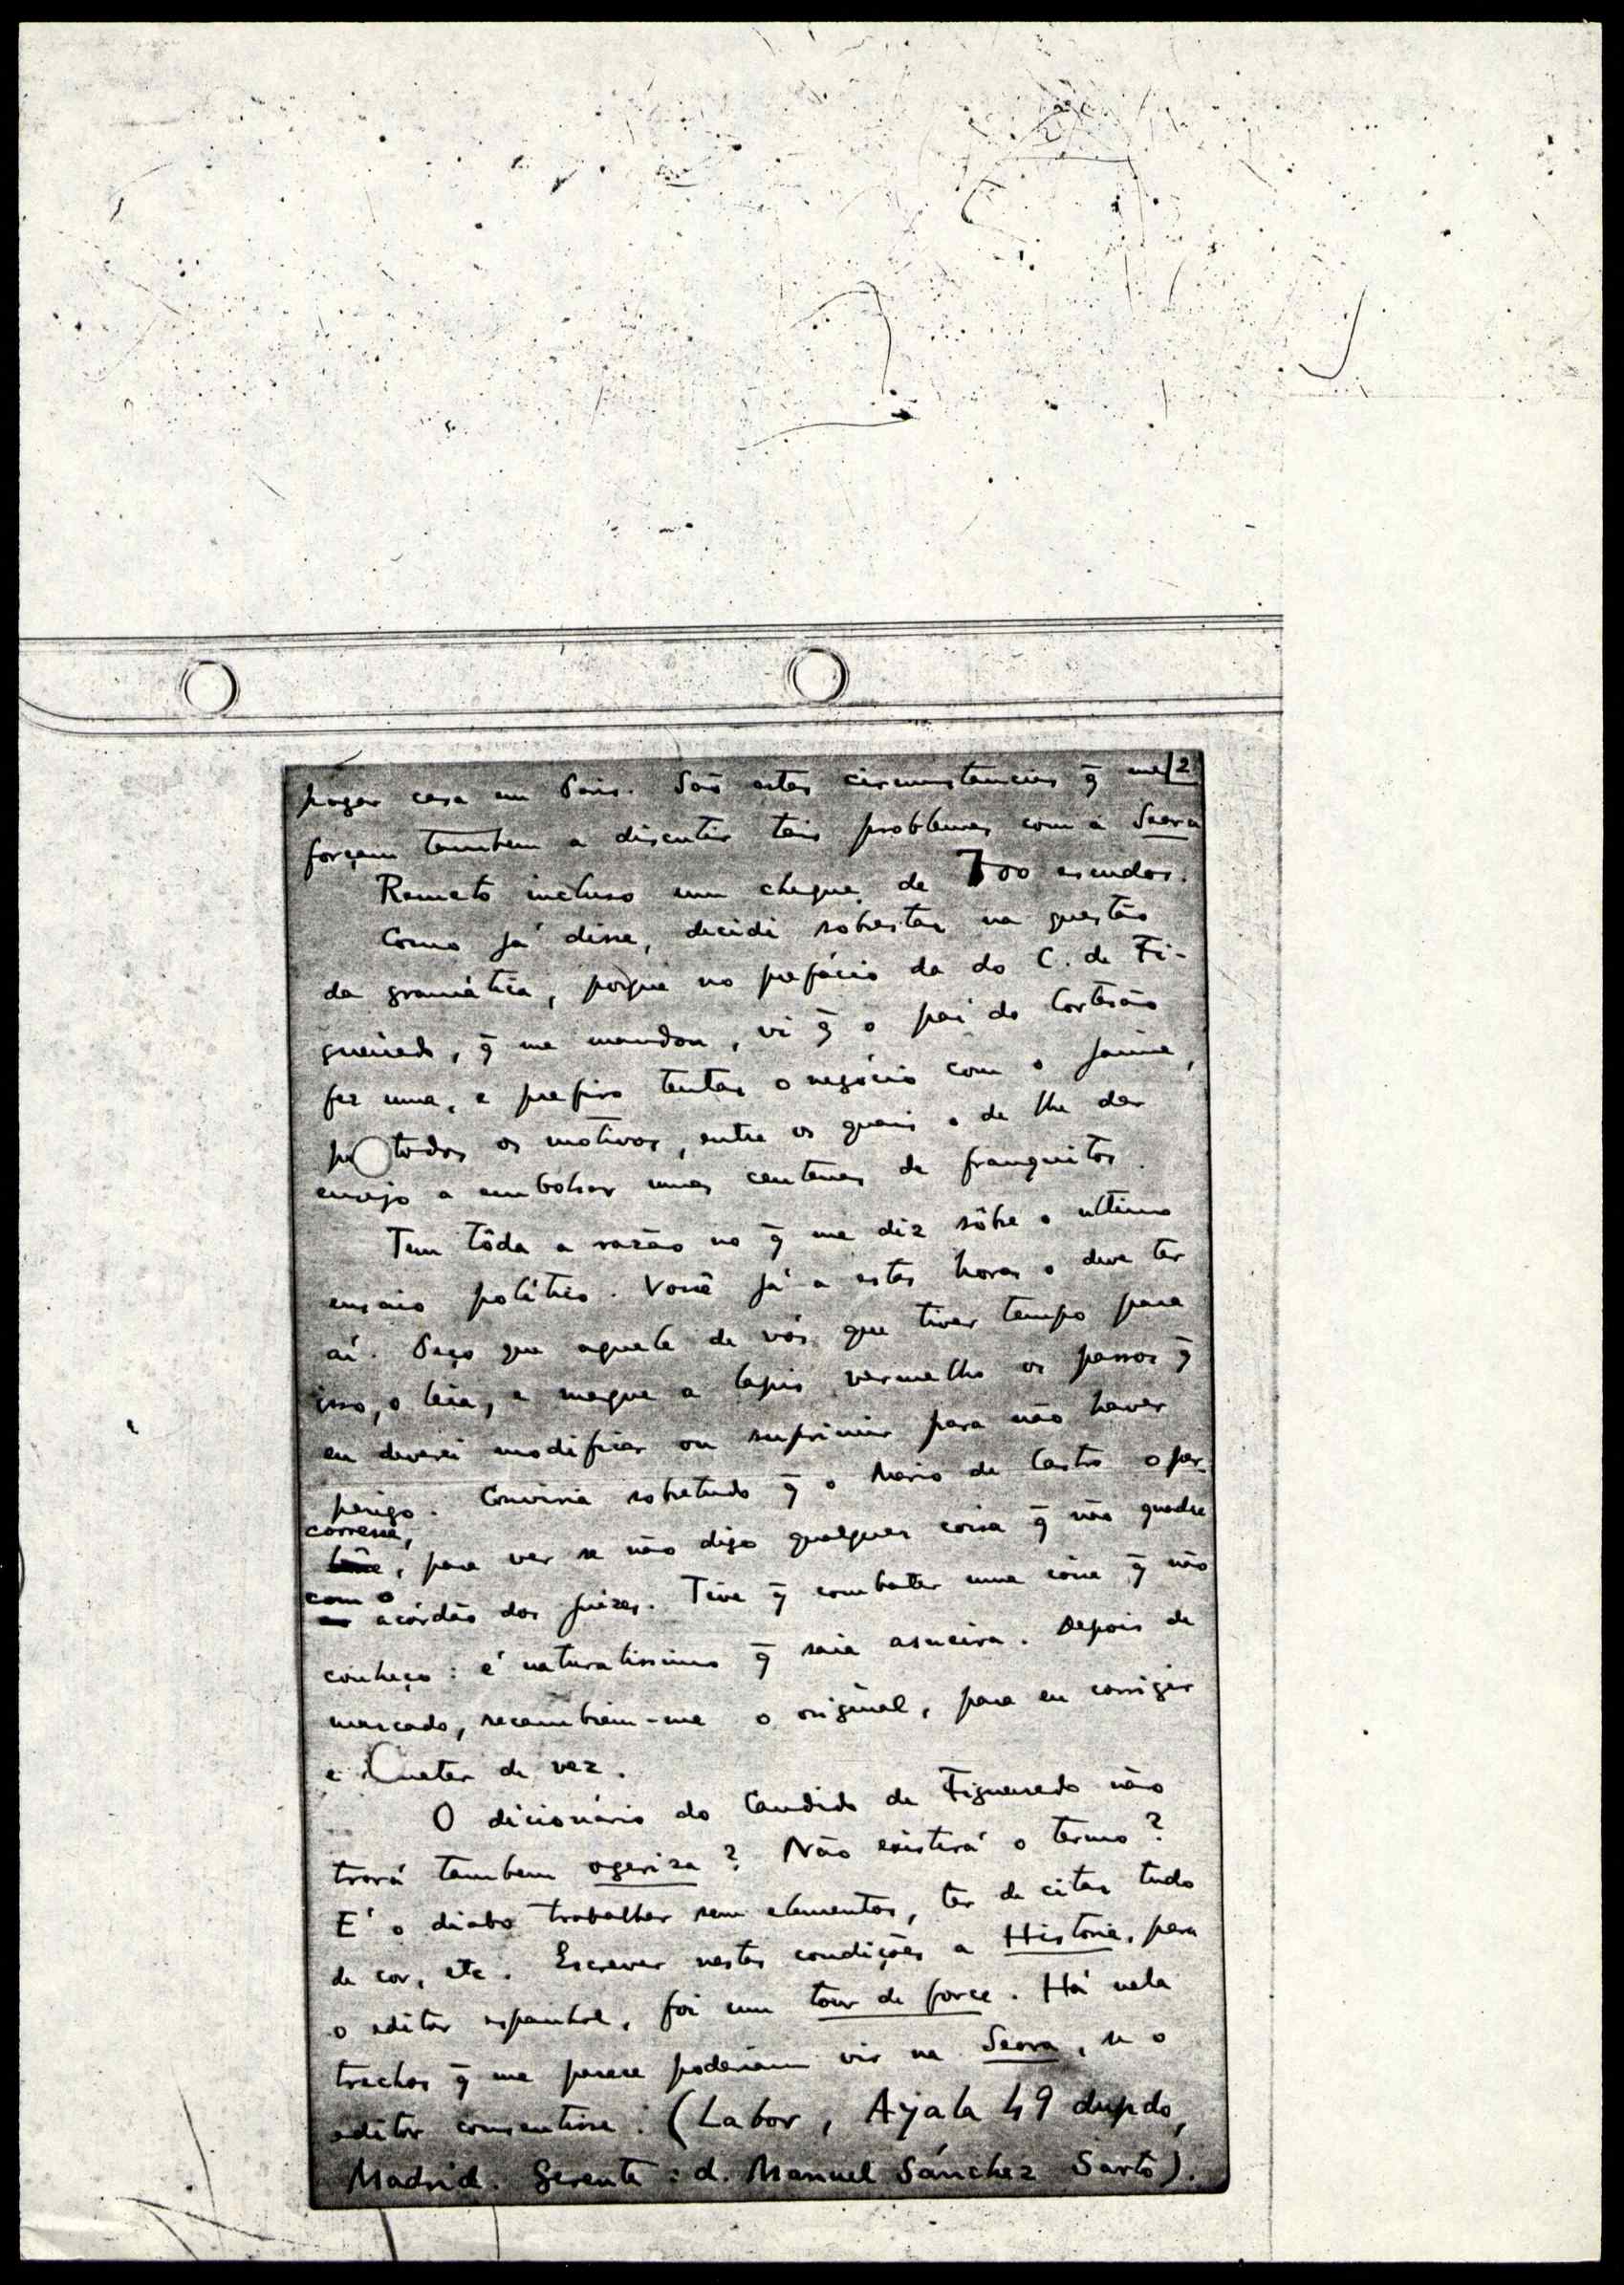 2
pagar casa em Paris. São estas circumstancias q̄ me
forçam tambem a discutir tais problemas com a Seara
Remeto incluso um cheque de 700 escudos.
Como já disse, decidi sobrestar na questão
da gramática, porque no prefácio da do C. de Fi-
gueiredo, q̄ me mandou, vi q̄ o pai do Cortesão
fez uma, e prefiro tentar o negócio com o Jaime,
por todos os motivos, entre os quais o de lhe dar
ensejo a embolsar umas centenas de franquitos.
Tem tôda a razão no q̄ me diz sôbre o ultimo
ensaio político. Você já a estas horas o deve ter
aí. Peço que aquele de vós que tiver tempo para
isso, o leia, e marque a lapis vermelho os passos q̄
eu deverei modificar ou suprimir para não haver
perigo. Conviria sobretudo q̄ o Mario de Castro o per-
corresse, para ver se não digo qualquer coisa q̄ não quadre
com o acórdão dos juizes. Tive q̄ combater uma coisa q̄ não
conheço: é naturalissimo q̄ saia asneira. Depois de
marcado, recambiem-me o original, para eu corrigir
e meter de vez.
O dicionário do Candido de Figueiredo não
trará tambem ogeriza? Não existirá o termo?
E' o diabo trabalhar sem elementos, ter de citar tudo
de cor, etc. Escrever nestas condições a Historia, para
o editor espanhol, foi um tour de force. Há nela
trechos q̄ me parece poderiam vir na Seara, se o
editor consentisse. (Labor, Ayala 49 dupdo,
Madrid. Gerente: d. Manuel Sánchez Sarto).